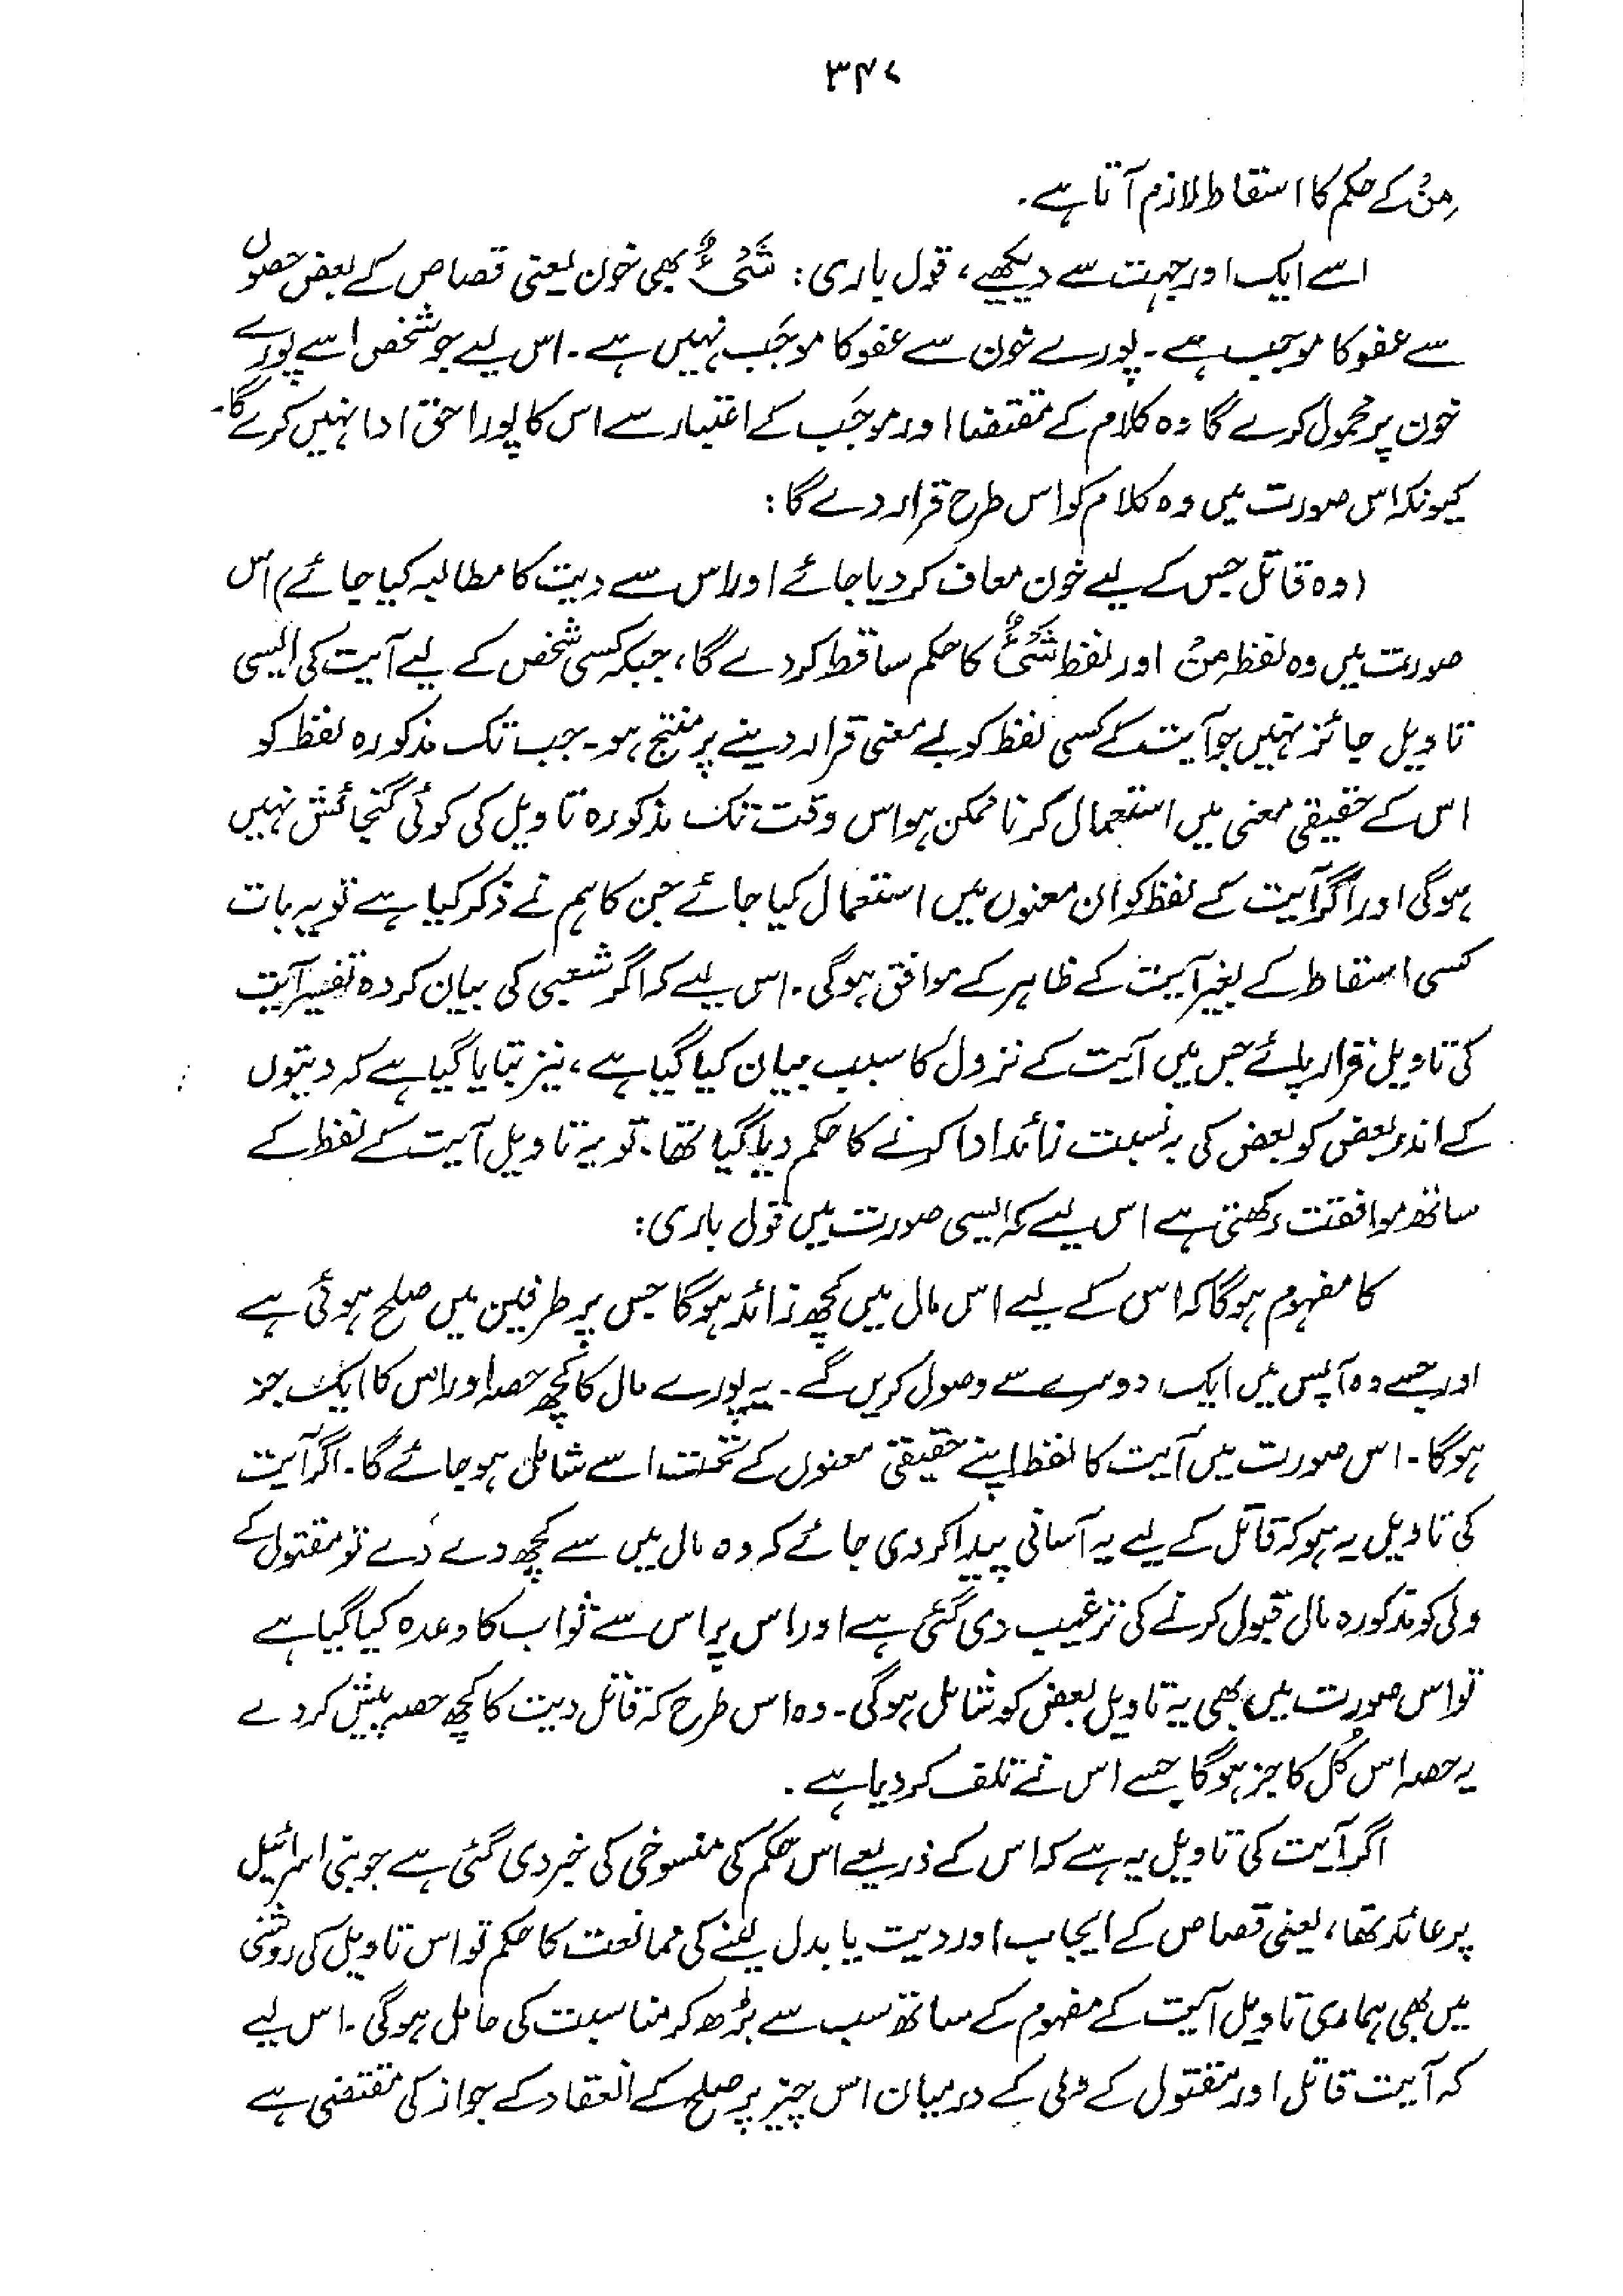 ۳۴۷
مِنْ کے حکم کا اسقاط لازم آتا ہے۔
اسے ایک اور جہت سے دیکھیے، قول باری: شَیْءٌ بھی خون یعنی قصاص کے بعض حصوں
سے عفو کا موجب ہے۔ پورے خون سے عفو کا موجَب نہیں ہے۔ اس لیے جو شخص اسے پورے
خون پر محمول کرے گا وہ کلام کے مقتضا اور موجَب کے اعتبار سے اس کا پورا حق ادا نہیں کرے گا۔
کیونکہ اس صورت میں وہ کلام کو اس طرح قرار دے گا:
(وہ قاتل جس کے لیے خون معاف کر دیا جائے اور اس سے دیت کا مطالبہ کیا جائے) اس
صورت میں وہ لفظ مِنْ اور لفظ شَیْءٌ کا حکم ساقط کر دے گا، جبکہ کسی شخص کے لیے آیت کی ایسی
تاویل جائز نہیں جو آیت کے کسی لفظ کو بے معنی قرار دینے پر منتج ہو۔ جب تک مذکورہ لفظ کو
اس کے حقیقی معنی میں استعمال کرنا ممکن ہو اس وقت تک مذکورہ تاویل کی کوئی گنجائش نہیں
ہوگی اور اگر آیت کے لفظ کو ان معنوں میں استعمال کیا جائے جن کا ہم نے ذکر کیا ہے تو یہ بات
کسی اسقاط کے بغیر آیت کے ظاہر کے موافق ہوگی۔ اس لیے کہ اگر شعبی کی بیان کردہ تفسیر آیت
کی تاویل قرار پائے جس میں آیت کے نزول کا سبب بیان کیا گیا ہے، نیز بتایا گیا ہے کہ دیتوں
کے اندر بعض کو بعض کی بہ نسبت زائد ادا کرنے کا حکم دیا گیا تھا۔ تو یہ تاویل آیت کے لفظ کے
ساتھ موافقت رکھتی ہے اس لیے کہ ایسی صورت میں قول باری:
کا مفہوم ہوگا کہ اس کے لیے اس مال میں کچھ زائد ہوگا جس پر طرفین میں صلح ہوئی ہے
اور جسے وہ آپس میں ایک دوسرے سے وصول کریں گے۔ یہ پورے مال کا کچھ حصہ اور اس کا ایک جز
ہوگا۔ اس صورت میں آیت کا لفظ اپنے حقیقی معنوں کے تحت اسے شامل ہو جائے گا۔ اگر آیت
کی تاویل یہ ہو کہ قاتل کے لیے یہ آسانی پیدا کر دی جائے کہ وہ مال میں سے کچھ دے دے تو مقتول کے
ولی کو مذکورہ مال قبول کرنے کی ترغیب دی گئی ہے اور اس پر اس سے ثواب کا وعدہ کیا گیا ہے
تو اس صورت میں بھی یہ تاویل بعض کو شامل ہوگی۔ وہ اس طرح کہ قاتل دیت کا کچھ حصہ پیش کر دے
یہ حصہ اس کُل کا جز ہوگا جسے اس نے تلف کر دیا ہے۔
اگر آیت کی تاویل یہ ہے کہ اس کے ذریعے اس حکم کی منسوخی کی خبر دی گئی ہے جو بنی اسرائیل
پر عائد تھا، یعنی قصاص کے ایجاب اور دیت یا بدل لینے کی ممانعت کا حکم تو اس تاویل کی روشنی
میں بھی ہماری تاویل آیت کے مفہوم کے ساتھ سب سے بڑھ کر مناسبت کی حامل ہوگی۔ اس لیے
کہ آیت قاتل اور مقتول کے ولی کے درمیان اس چیز پر صلح کے انعقاد کے جواز کی مقتضی ہے